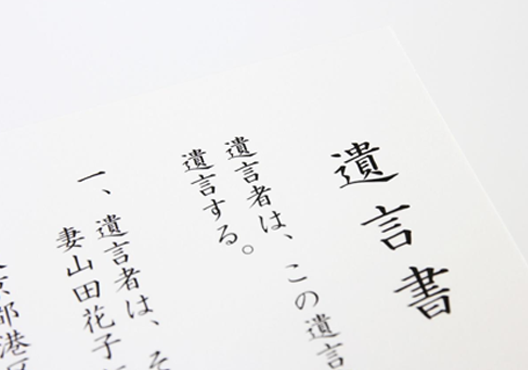 遺言書
遺言者は、この遺言
遺言する。
一、遺言者は、そ
妻山田花子
京都港区